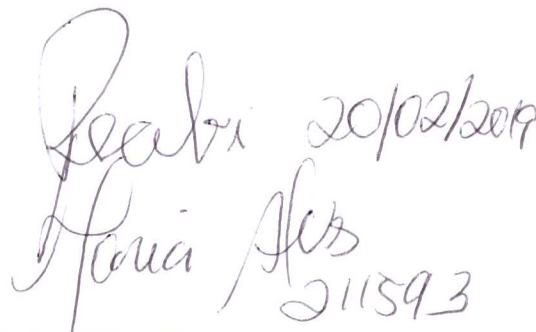 Recebi 20/02/2019
Maria Alves
211593